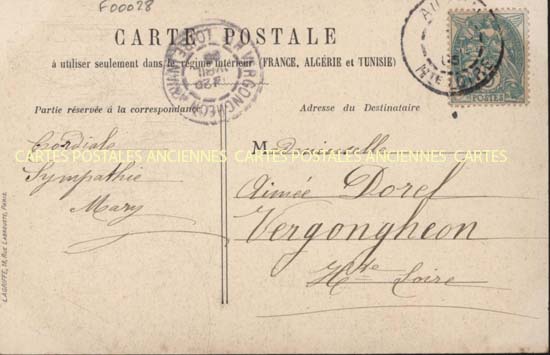 F00028
CARTE POSTALE
à utiliser seulement dans le régime intérieur (FRANCE, ALGÉRIE et TUNISIE)
Partie réservée à la correspondance
Adresse du Destinataire
POSTES
Cordiale
Sympathie
Mary
Mademoiselle
Aimée Dorel
Vergongheon
Hte Loire
CARTES POSTALES ANCIENNES CARTES POSTALES ANCIENNES CARTES
LAGRIFFE, 14, RUE LABROUSTE, PARIS